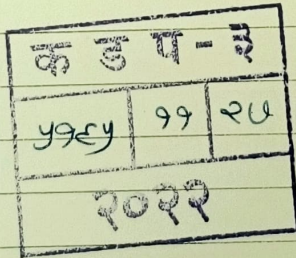 क ड प - ३
५१६५ ११ २७
२०२२